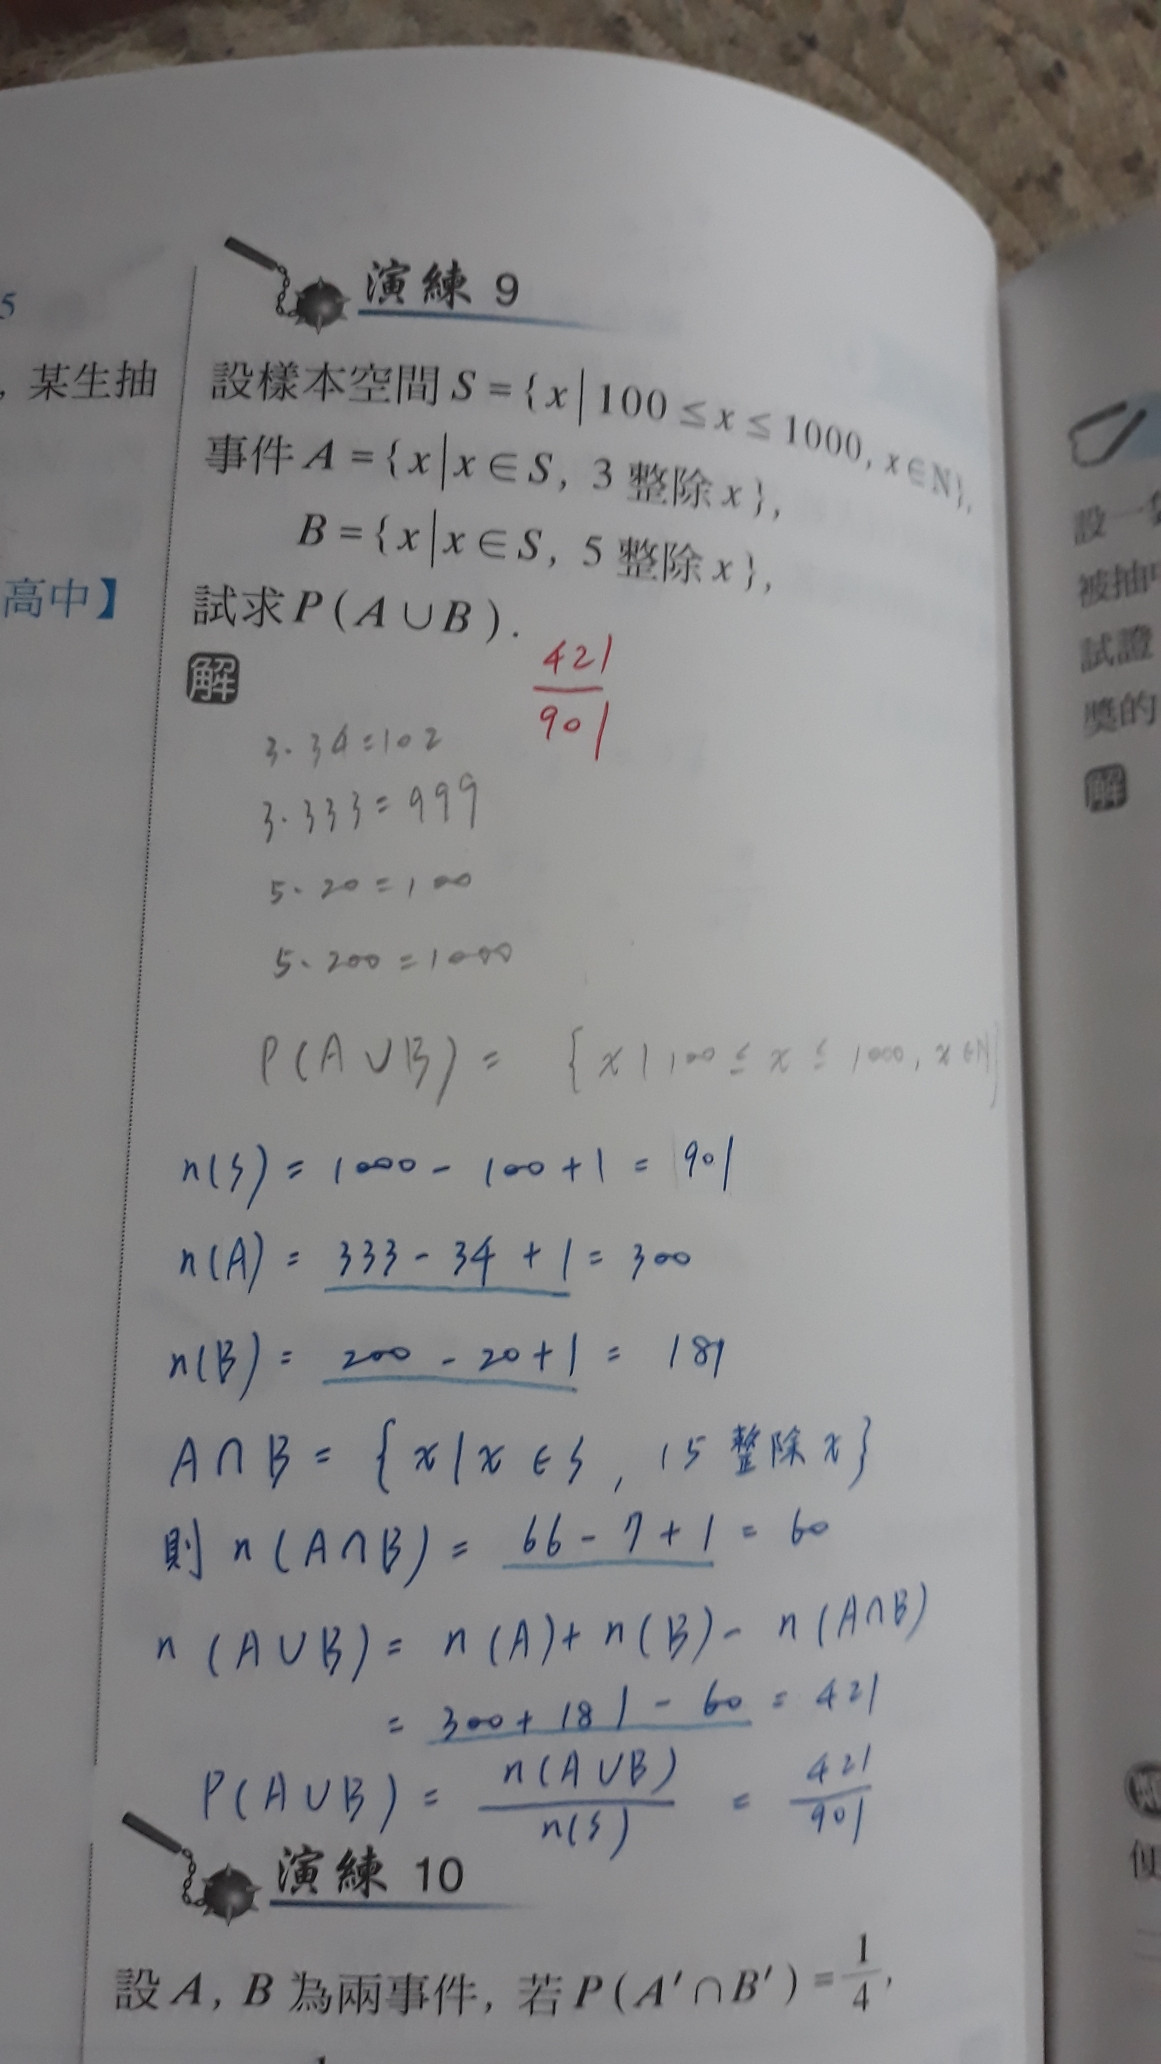 5
，某生抽
高中】
演練 9
設樣本空間 S = {x | 100 ≤ x ≤ 1000, x ∈ N},
事件 A = {x | x ∈ S, 3 整除 x},
B = {x | x ∈ S, 5 整除 x},
試求 P(A ∪ B).
421/901
解
3·34=102
3·333=999
5·20=100
5·200=1000
P(A∪B) = {x | 100 ≤ x ≤ 1000, x∈N}
n(S) = 1000 - 100 + 1 = 901
n(A) = 333 - 34 + 1 = 300
n(B) = 200 - 20 + 1 = 181
A∩B = {x | x ∈ S, 15 整除 x}
則 n(A∩B) = 66 - 7 + 1 = 60
n(A∪B) = n(A) + n(B) - n(A∩B)
= 300 + 181 - 60 = 421
P(A∪B) = n(A∪B)/n(S) = 421/901
演練 10
設 A, B 為兩事件, 若 P(A'∩B') = 1/4,
設一
被抽
試證
獎的
解